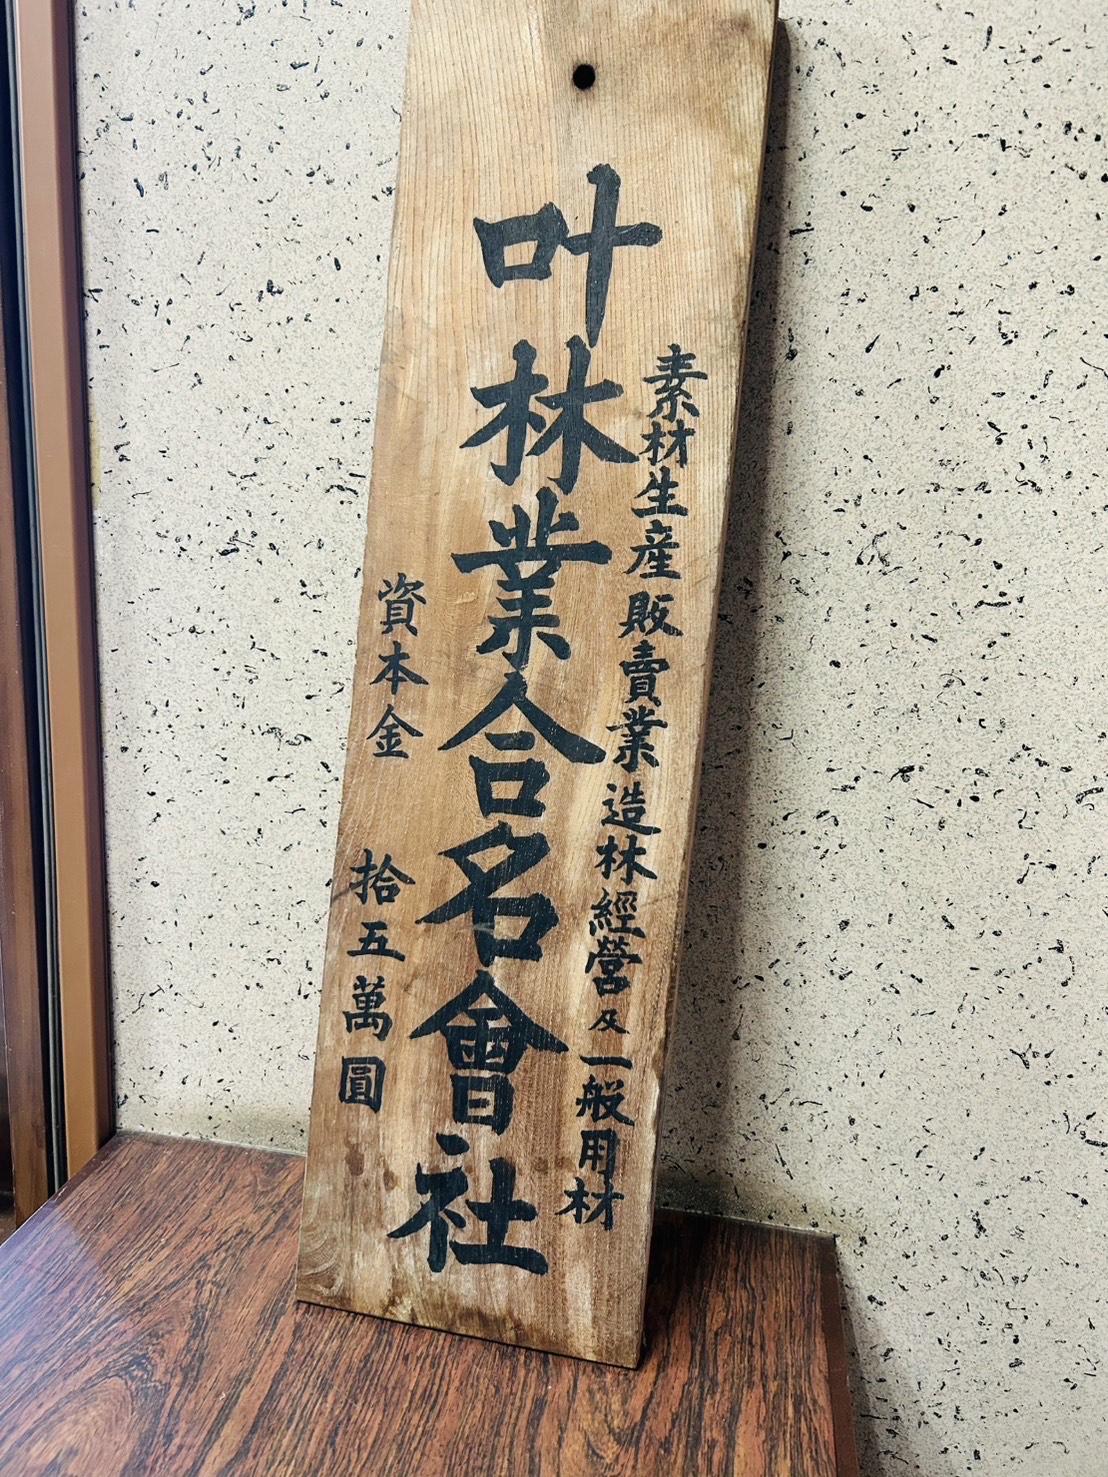 素材生産販賣業造林經營及一般用材
叶林業合名會社
資本金 拾五萬圓